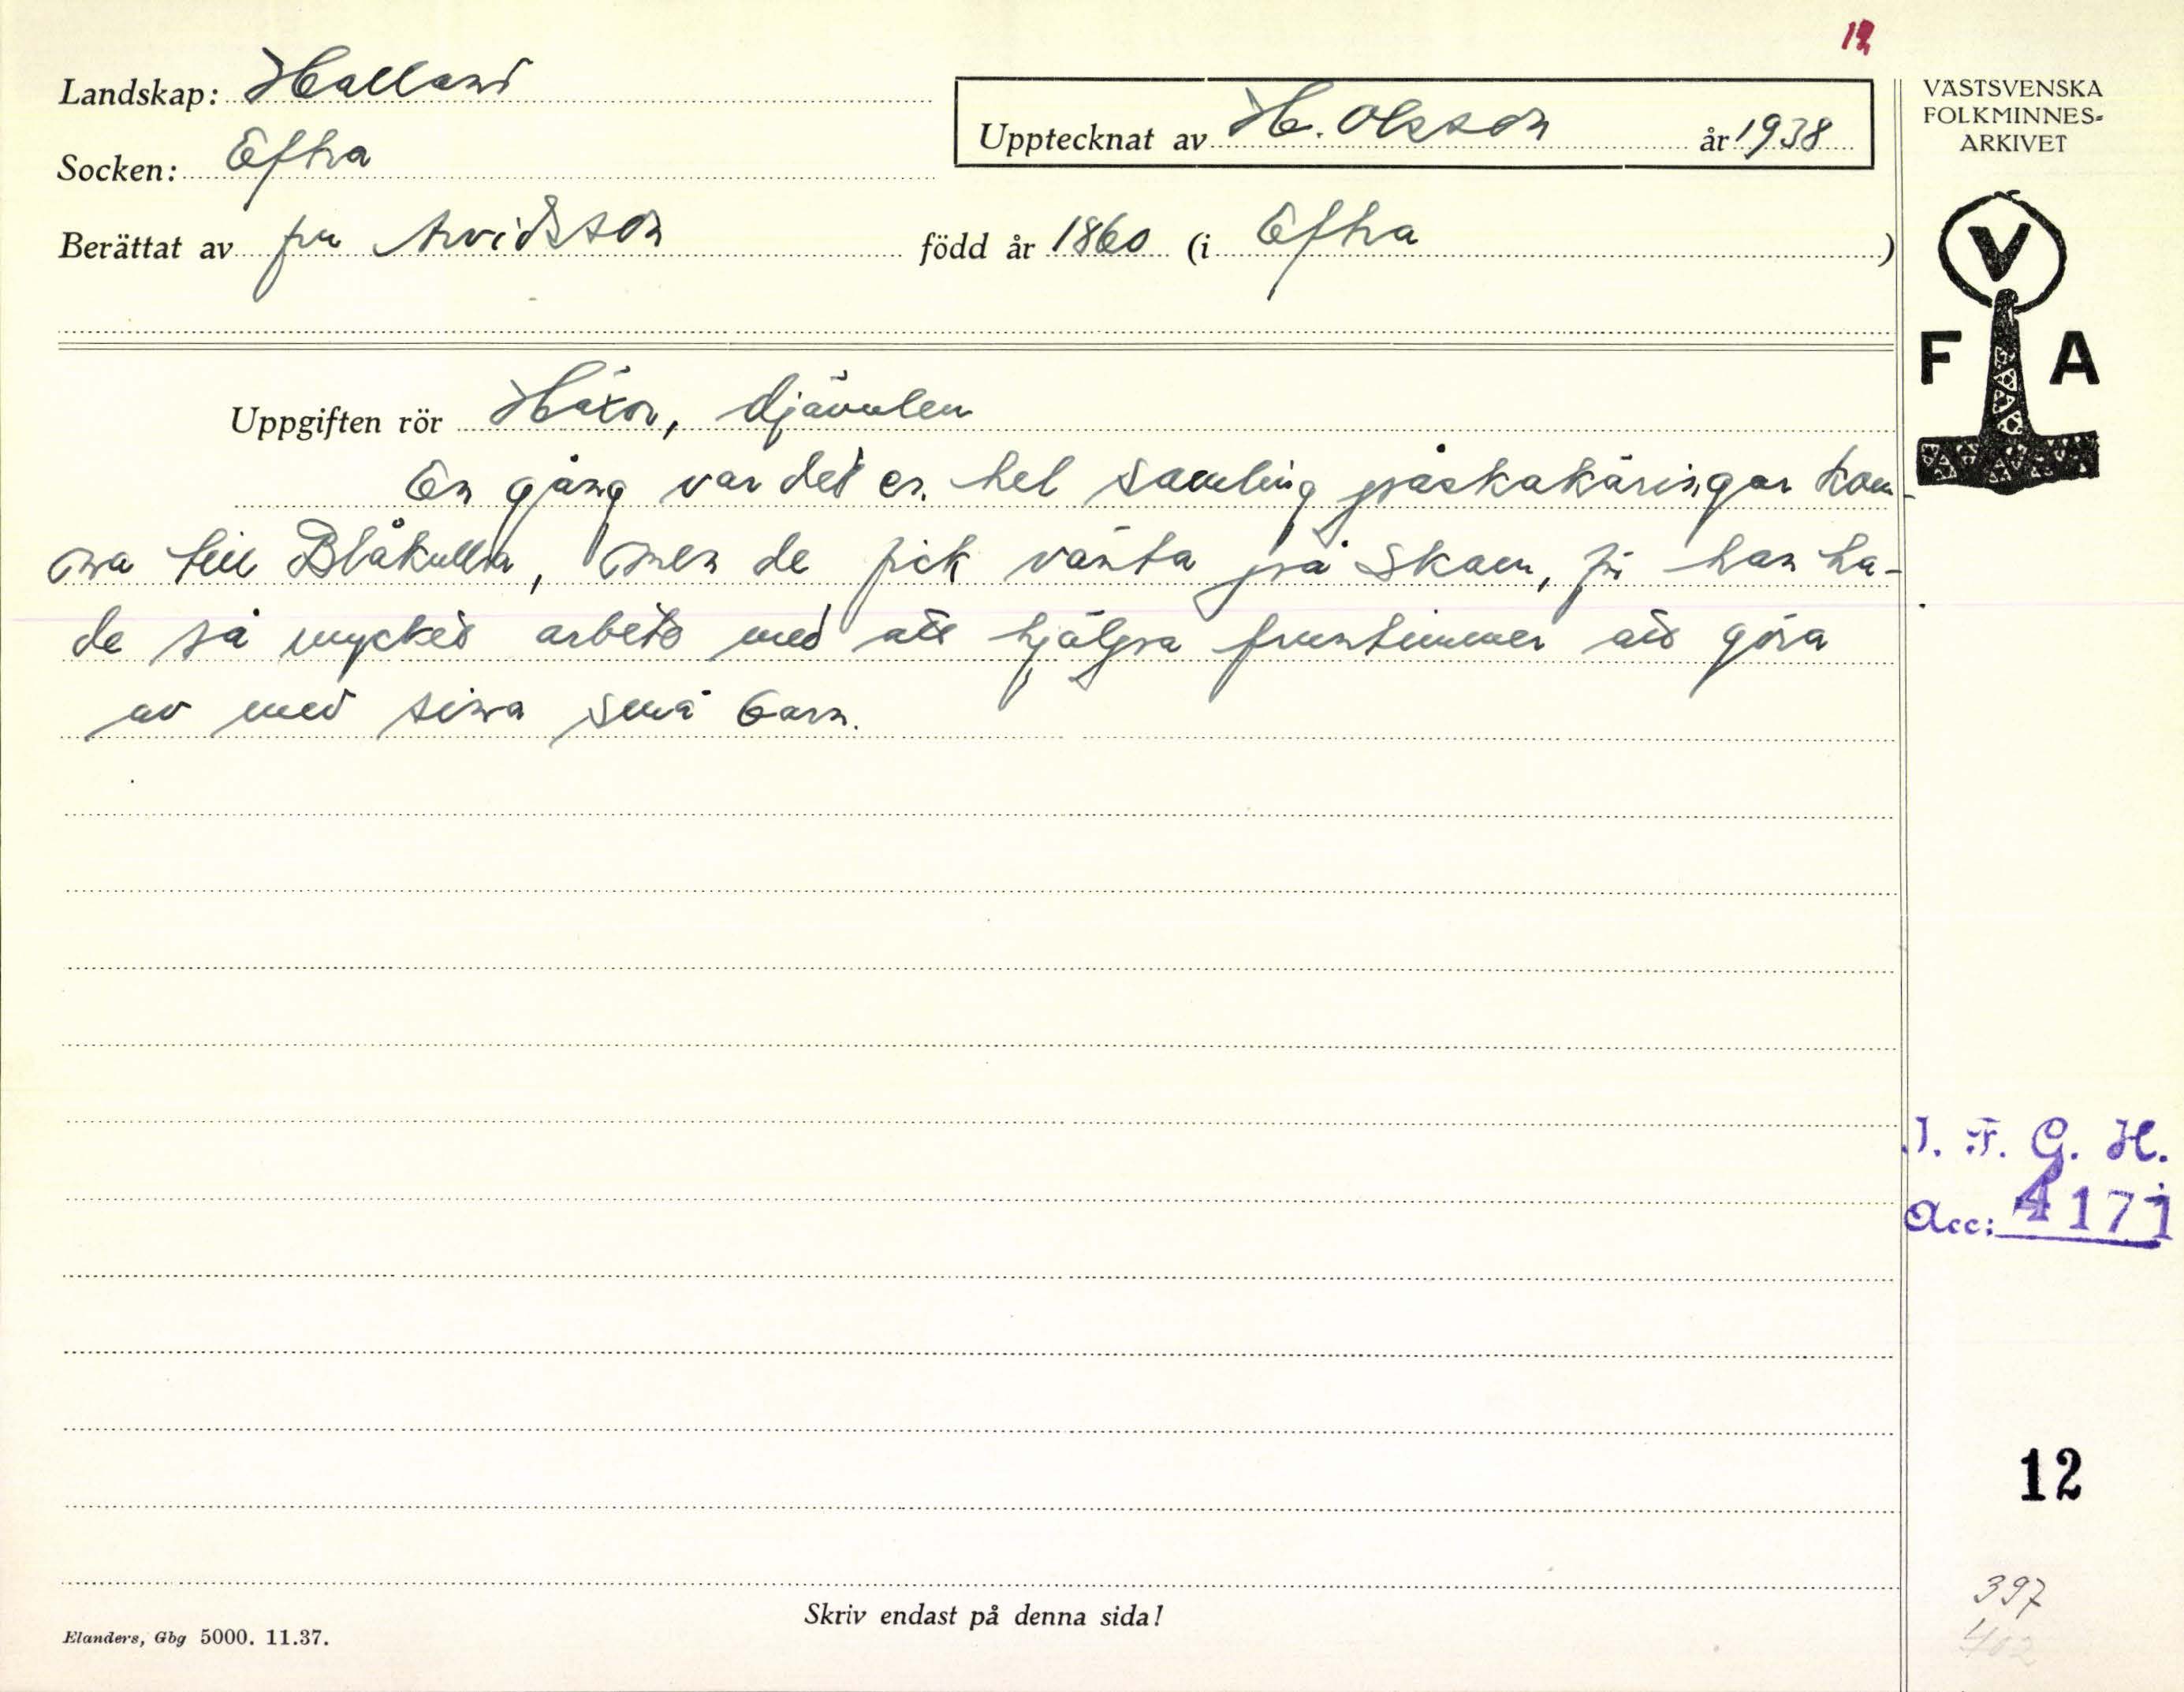 12
Landskap: Halland
Socken: Eftra
Upptecknat av H. Olsson år 1938
Berättat av fru Arvidsson född år 1860 (i Eftra )
VÄSTSVENSKA
FOLKMINNES-
ARKIVET
V
F A
Uppgiften rör Häxor, djävulen
En gång var det en hel samling påskakäringar kom-
na till Blåkulla, men de fick vänta på Skam, för han ha-
de så mycket arbete med att hjälpa fruntimmer att göra
av med sina små barn.
I. F. G. H.
Acc: 4171
12
397
402
Skriv endast på denna sida!
Elanders, Gbg 5000. 11.37.